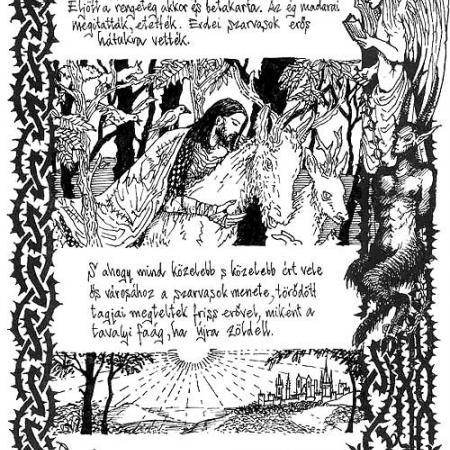 Eljött a rengeteg akkor és betakarta. Az ég madarai
megitatták, etették. Erdei szarvasok erős
hátukra vették.
S ahogy mind közelebb s közelebb ért vele
ős városához a szarvasok menete, törődött
tagjai megbeltek friss erővel, miként a
tavalyi faág, ha újra zöldéll.